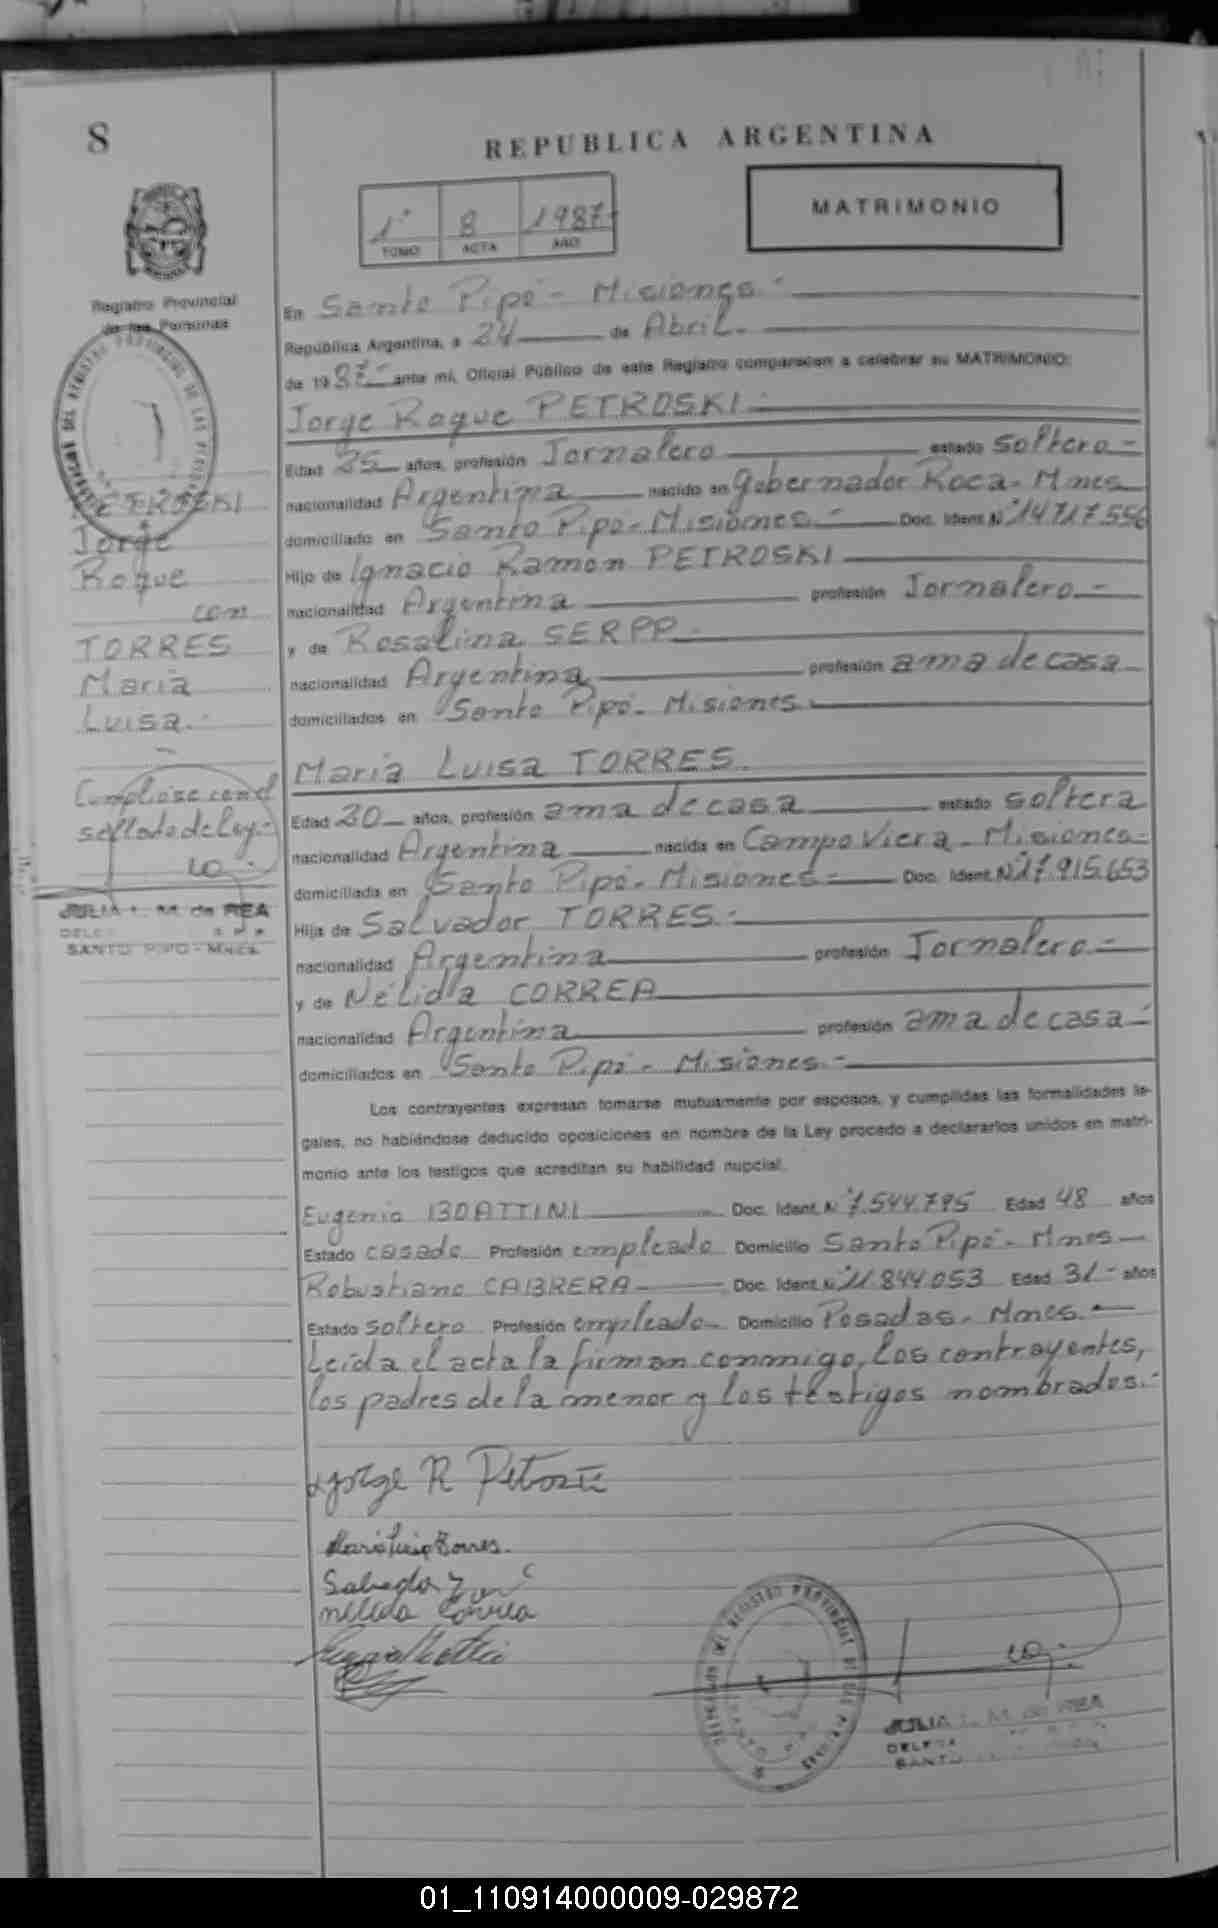 8
REPUBLICA ARGENTINA
1° 8 1987-
TOMO ACTA AÑO
MATRIMONIO
Registro Provincial
de las Personas
En Santo Pipó - Misiones.-
República Argentina, a 24 de Abril.-
de 1987- ante mí, Oficial Público de este Registro comparecen a celebrar su MATRIMONIO:
Jorge Roque PETROSKI.-
Edad 25 años, profesión Jornalero estado soltero-
nacionalidad Argentina nacido en Gobernador Roca- Mnes
domiciliado en Santo Pipó- Misiones.- Doc. Ident. N° 14.717.556
Hijo de Ignacio Ramon PETROSKI
nacionalidad Argentina profesión Jornalero-
y de Rosalina SERPP.-
nacionalidad Argentina profesión ama de casa
domiciliados en Santo Pipó- Misiones
PETROSKI
Jorge
Roque
con
TORRES
Maria
Luisa.-
Maria Luisa TORRES.
Edad 20 años, profesión ama de casa estado soltera
nacionalidad Argentina nacida en Campo Viera- Misiones-
domiciliada en Santo Pipó- Misiones- Doc. Ident. N° 17.915.653
Hija de Salvador TORRES.-
nacionalidad Argentina profesión Jornalero-
y de Nélida CORREA
nacionalidad Argentina profesión ama de casa-
domiciliados en Santo Pipó- Misiones.-
Cumpliose con el
sellado de Ley.-
JULIA L. M. de REA
SANTO PIPO - Mnes.
Los contrayentes expresan tomarse mutuamente por esposos, y cumplidas las formalidades le-
gales, no habiéndose deducido oposiciones en nombre de la Ley procedo a declararlos unidos en matri-
monio ante los testigos que acreditan su habilidad nupcial.
Eugenio BOATTINI Doc. Ident. N° 7.544.795 Edad 48 años
Estado casado Profesión empleado Domicilio Santo Pipó- Mnes-
Robustiano CABRERA Doc. Ident. N° 11.844.053 Edad 31- años
Estado soltero Profesión empleado Domicilio Posadas- Mnes.-
Leída el acta la firman conmigo, los contrayentes,
los padres de la menor y los testigos nombrados.-
Jorge R Petroski
Maria Luisa Torres.
Salvador
Nelida Correa
JULIA L. M. de REA
01_110914000009-029872